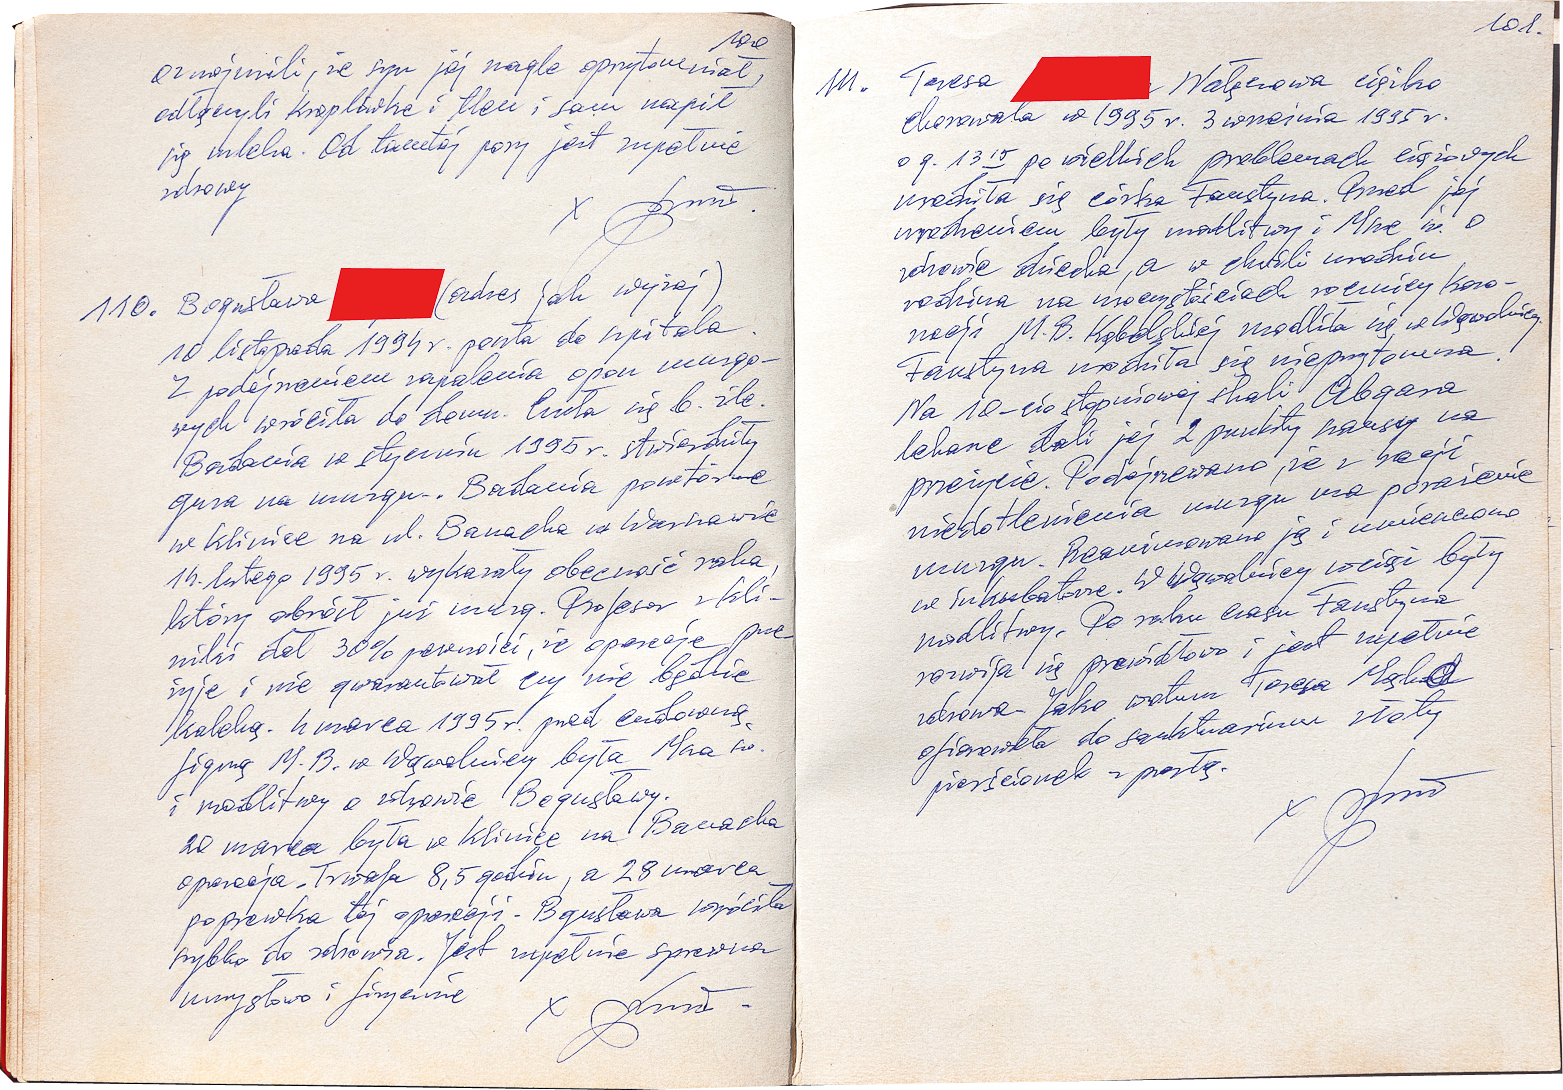 100
oznajmili, że syn jej nagle oprzytomniał,
odłączyli kroplówkę i tlen i sam napił
się mleka. Od tamtej pory jest zupełnie
zdrowy
x
110. Bogusława (adres jak wyżej)
10 listopada 1994 r. poszła do szpitala.
Z podejrzeniem zapalenia opon mózgo-
wych wróciła do domu. Czuła się b. źle.
Badania w styczniu 1995 r. stwierdziły
guza na mózgu. Badania powtórne
w klinice na ul. Banacha w Warszawie
14. lutego 1995 r. wykazały obecność raka,
który obrósł już mózg. Profesor z kli-
niki dał 30% pewności, że operację prze-
żyje i nie gwarantował czy nie będzie
kaleką. 4 marca 1995 r. przed cudowną
figurą M.B. w Wąwolnicy była Msza św.
i modlitwy o zdrowie Bogusławy.
20 marca była w klinice na Banacha
operacja. Trwała 8,5 godzin, a 28 marca
poprawka tej operacji. Bgusława wróciła
szybko do zdrowia. Jest zupełnie sprawna
umysłowo i fizycznie
x
101.
111. Teresa Wałęrowa ciężko
chorowała w 1995 r. 3 września 1995 r.
o g. 13 15 po wielkich problemach ciążowych
urodziła się córka Faustyna. Przed jej
urodzeniem były modlitwy i Msze św. o
zdrowie dziecka, a w chwili urodzin
rodzina na uroczystościach rocznicy Koro-
nacji M.B. Kębelskiej modliła się w Wąwolnicy.
Faustyna urodziła się nieprzytomna.
Na 10-cio stopniowej skali Abgara
lekarze dali jej 2 punkty szansy na
przeżycie. Podejrzewano, że z racji
niedotlenienia mózgu ma porażenie
mózgu. Reanimowano ją i umieszczono
w inkubatorze. W Wąwolnicy wciąż były
modlitwy. Po roku czasu Faustyna
rozwija się prawidłowo i jest zupełnie
zdrowa. Jako wotum Teresa
ofiarowała do sanktuarium złoty
pierścionek z perłą.
x